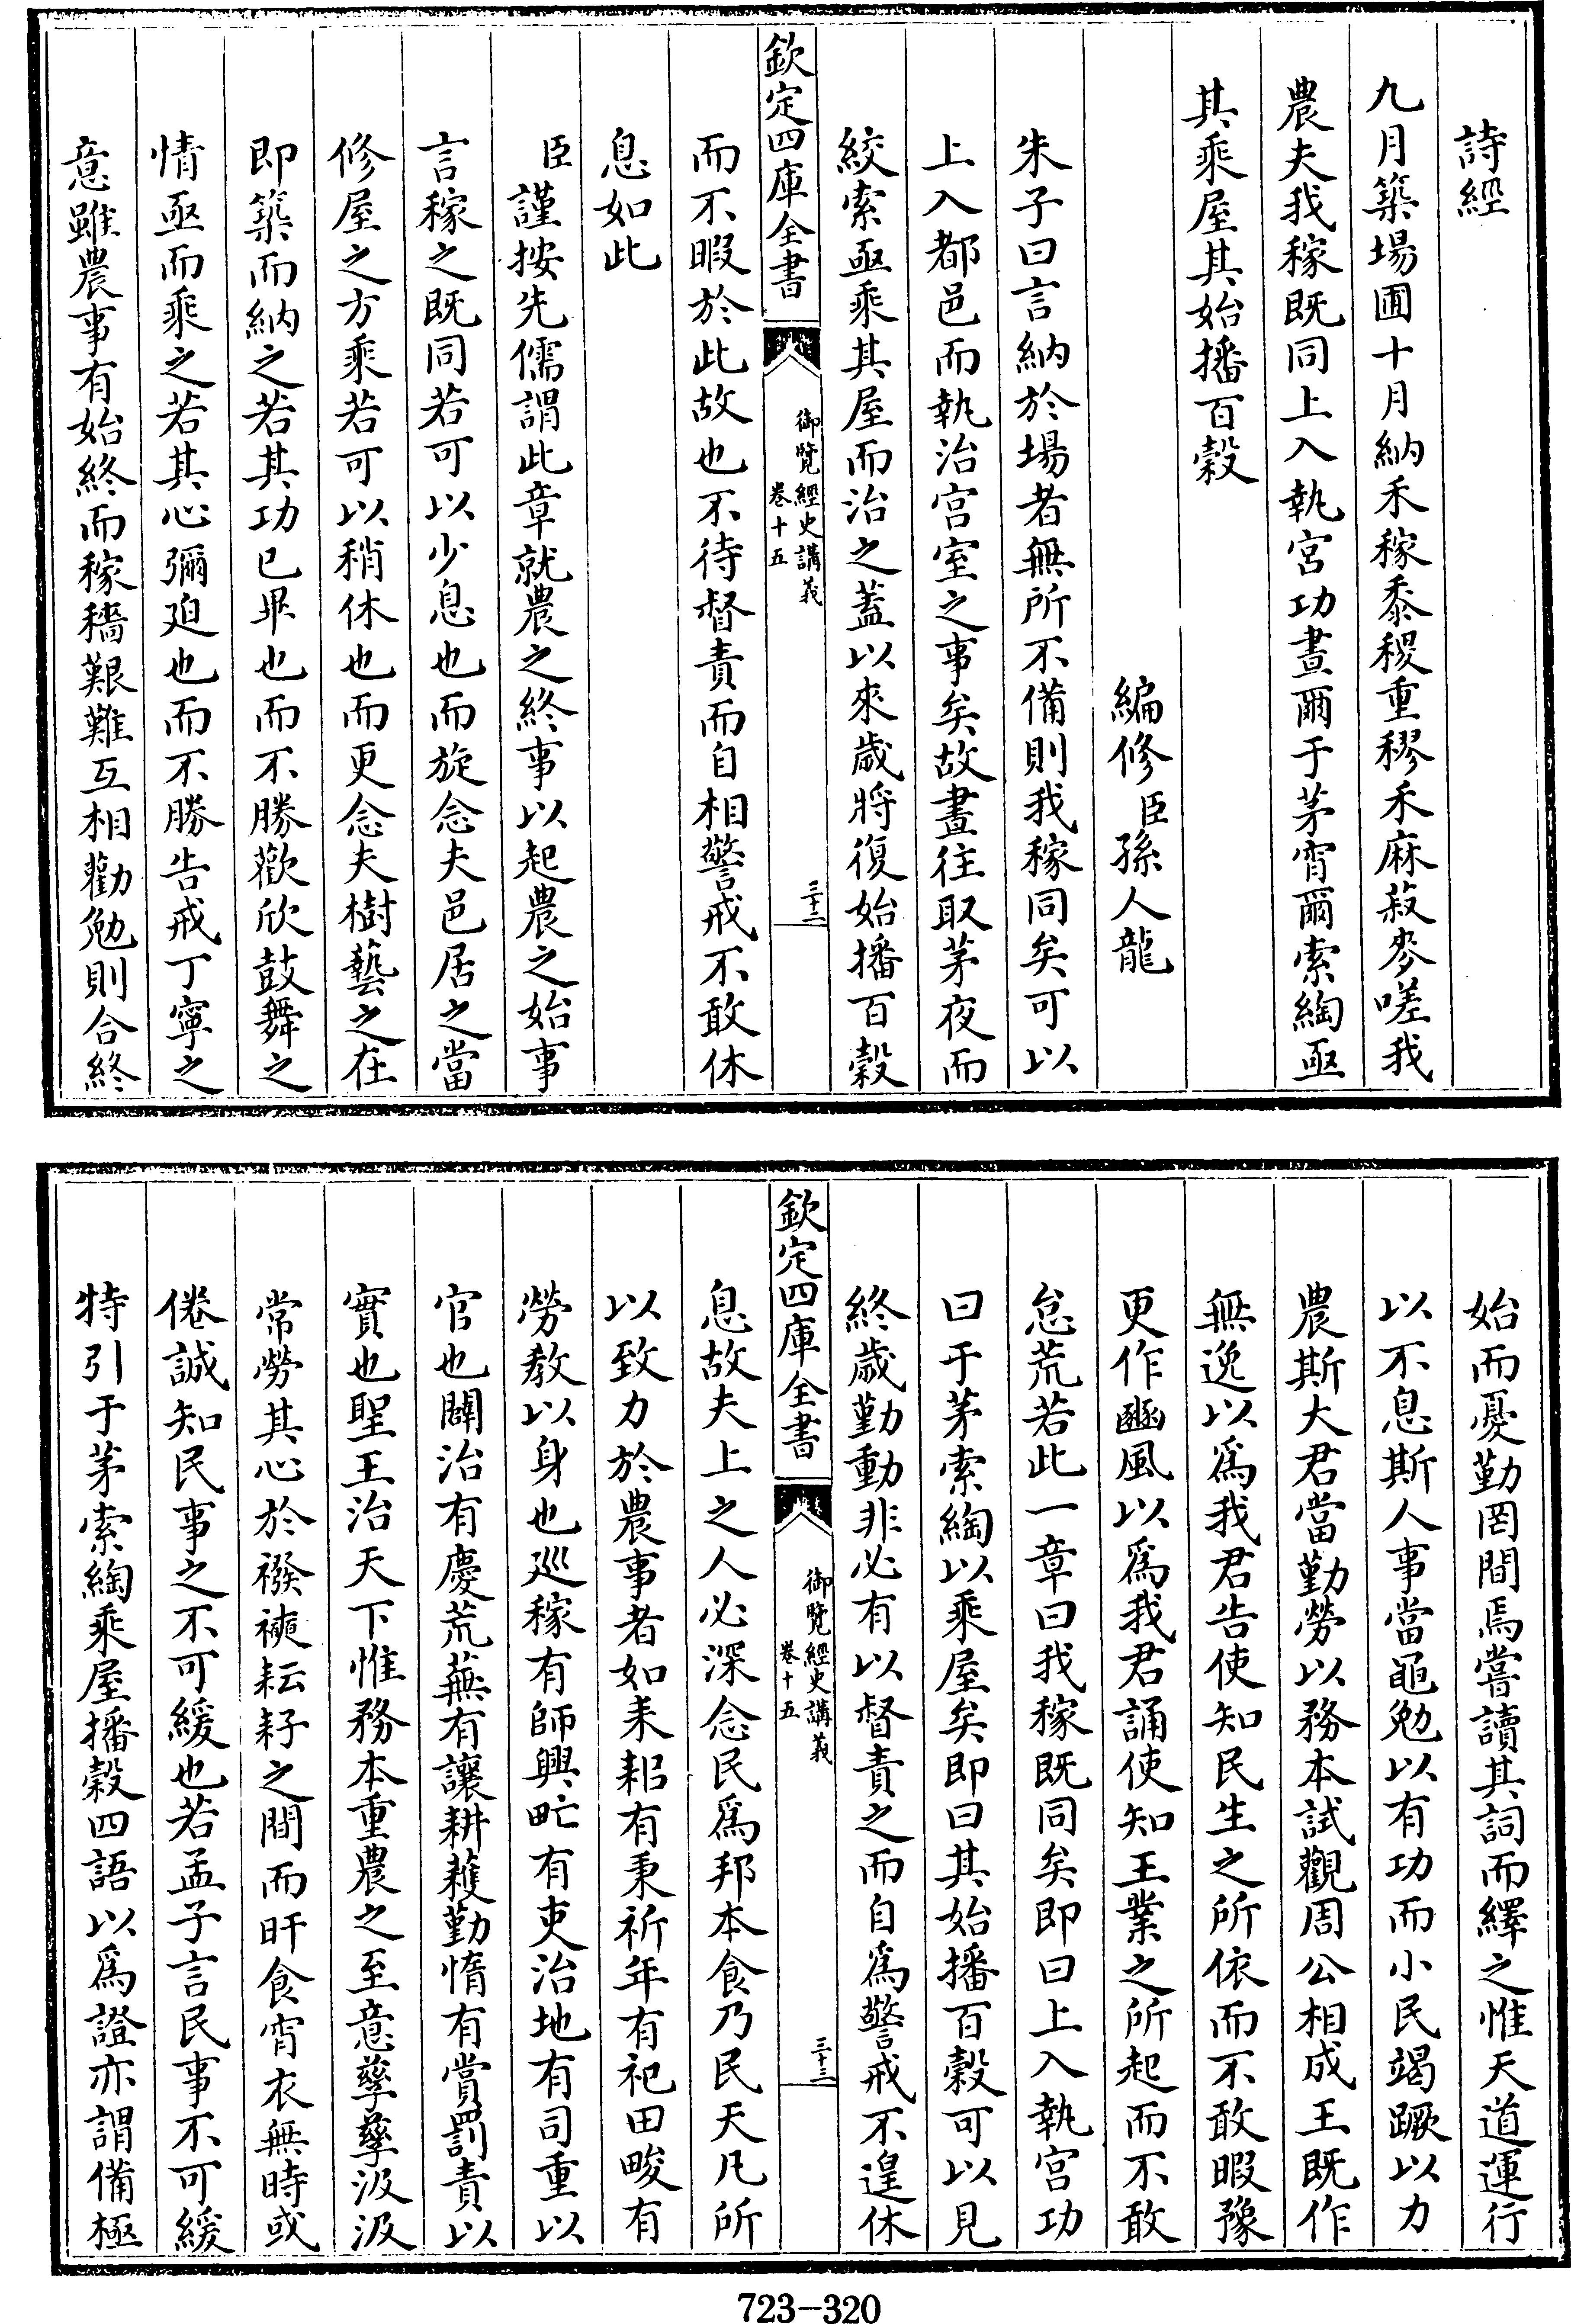 詩經
九月築場圃十月納禾稼黍稷重穋禾麻菽麥嗟我
農夫我稼既同上入執宮功晝爾于茅宵爾索綯亟
其乘屋其始播百穀
編修臣孫人龍
朱子曰言納於場者無所不備則我稼同矣可以
上入都邑而執治宮室之事矣故晝往取茅夜而
絞索亟乘其屋而治之蓋以來歲將復始播百穀
欽定四庫全書
御覽經史講義
卷十五
三十二
而不暇於此故也不待督責而自相警戒不敢休
息如此
臣謹按先儒謂此章就農之終事以起農之始事
言稼之既同若可以少息也而旋念夫邑居之當
修屋之方乘若可以稍休也而更念夫樹藝之在
即築而納之若其功已畢也而不勝歡欣鼓舞之
情亟而乘之若其心彌迫也而不勝告戒丁寧之
意雖農事有始終而稼穡艱難互相勸勉則合終
始而憂勤罔間焉嘗讀其詞而繹之惟天道運行
以不息斯人事當黽勉以有功而小民竭蹶以力
農斯大君當勤勞以務本試觀周公相成王既作
無逸以為我君告使知民生之所依而不敢暇豫
更作豳風以為我君誦使知王業之所起而不敢
怠荒若此一章曰我稼既同矣即曰上入執宮功
曰于茅索綯以乘屋矣即曰其始播百穀可以見
終歲勤動非必有以督責之而自為警戒不遑休
欽定四庫全書
御覽經史講義
卷十五
三十三
息故夫上之人必深念民為邦本食乃民天凡所
以致力於農事者如耒耜有秉祈年有祀田畯有
勞教以身也巡稼有師興甿有吏治地有司重以
官也闢治有慶荒蕪有讓耕穫勤惰有賞罰責以
實也聖王治天下惟務本重農之至意孳孳汲汲
常勞其心於襏襫耘耔之間而旰食宵衣無時或
倦誠知民事之不可緩也若孟子言民事不可緩
特引于茅索綯乘屋播穀四語以為證亦謂備極
723-320